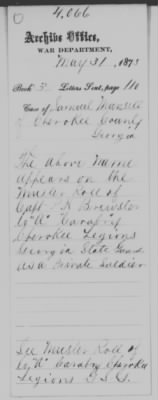 4,066
Archive Office,
WAR DEPARTMENT,
May 31, 1875
Book 3 Letters Sent, page 110
Case of Samuel Mansell
of Cherokee County
Georgia
The above name
appears on the
Muster Roll of
Capt Brewster
Co "A" Cavalry
Cherokee Legions
Georgia State Guard
as a Private Soldier
See Muster Roll of
Co "A" Cavalry Cherokee
Legions